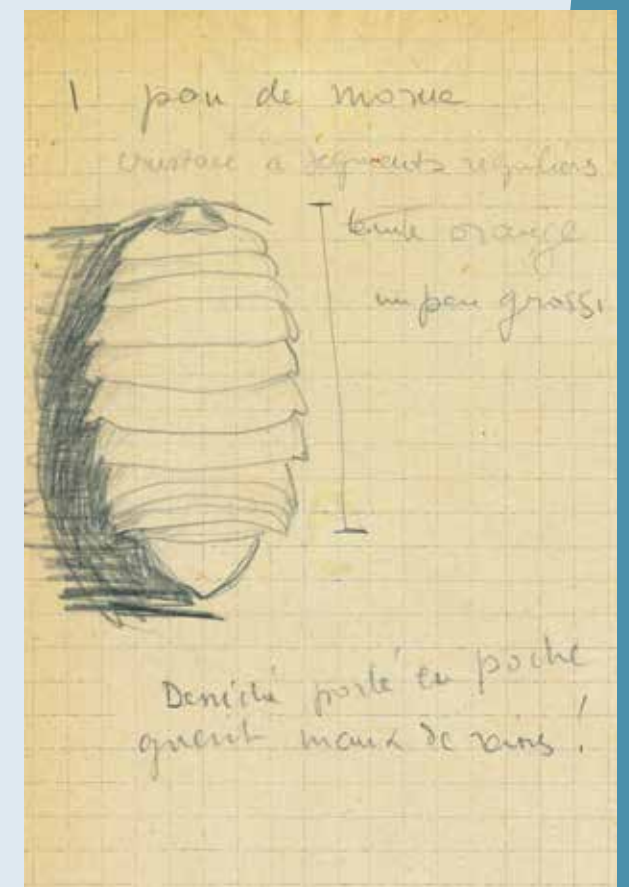 1 pou de morue
crustacé à segments réguliers
teinte orange
un peu grossi
Desséché porté en poche
guérit maux de reins !